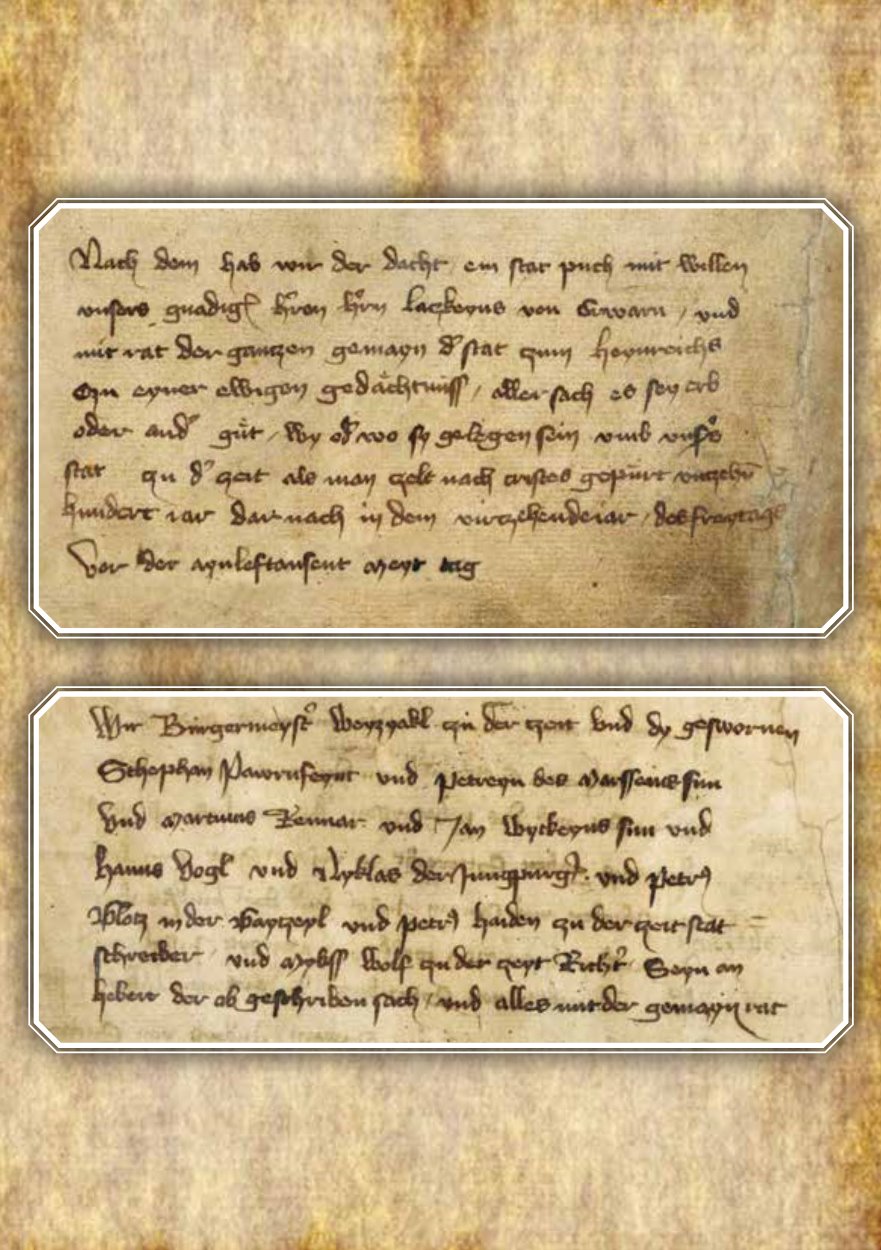 Nach dem hab wir der dacht ein stat puch mit willen
unsers gnadig h'ren h'rn laczkeyns von und
mit rat der gantzen gemayn d' stat zum heynreichs
czu eyner ewigen gedächtnüss / aller sach es sey erb
oder and' güt / wy od' wo sy gelegen sein umb
stat czu d' czeit als man czelt nach cristes gepürt
hundert iar dar nach in dem virczehende iar / des freytags
Vor der aynleftausent meyt tag
Wir Bürgermeyst' czu der czeit vnd dy geswornen
Stephan vnd Petreyn des sun
Vnd martinus Rennar vnd Jan Wyckeyns sun vnd
hanns Vogl vnd Nyklas der vnd Pet'
in der vnd Pet' haiden czu der czeit stat
schreiber vnd Wolf czu der czeyt Richt' Seyn an
heber der ob geschriben sach / vnd alles mit der gemayn rat